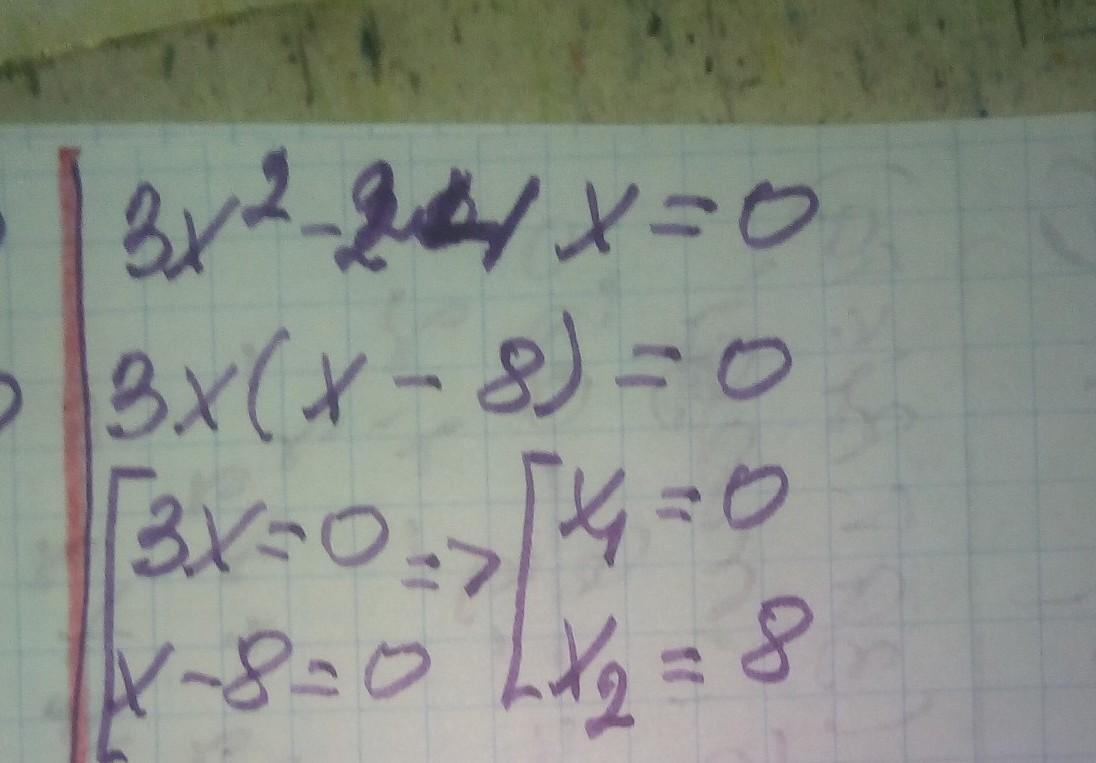 3x² - 24x = 0
3x(x - 8) = 0
[3x = 0 => [x₁ = 0
x - 8 = 0 x₂ = 8